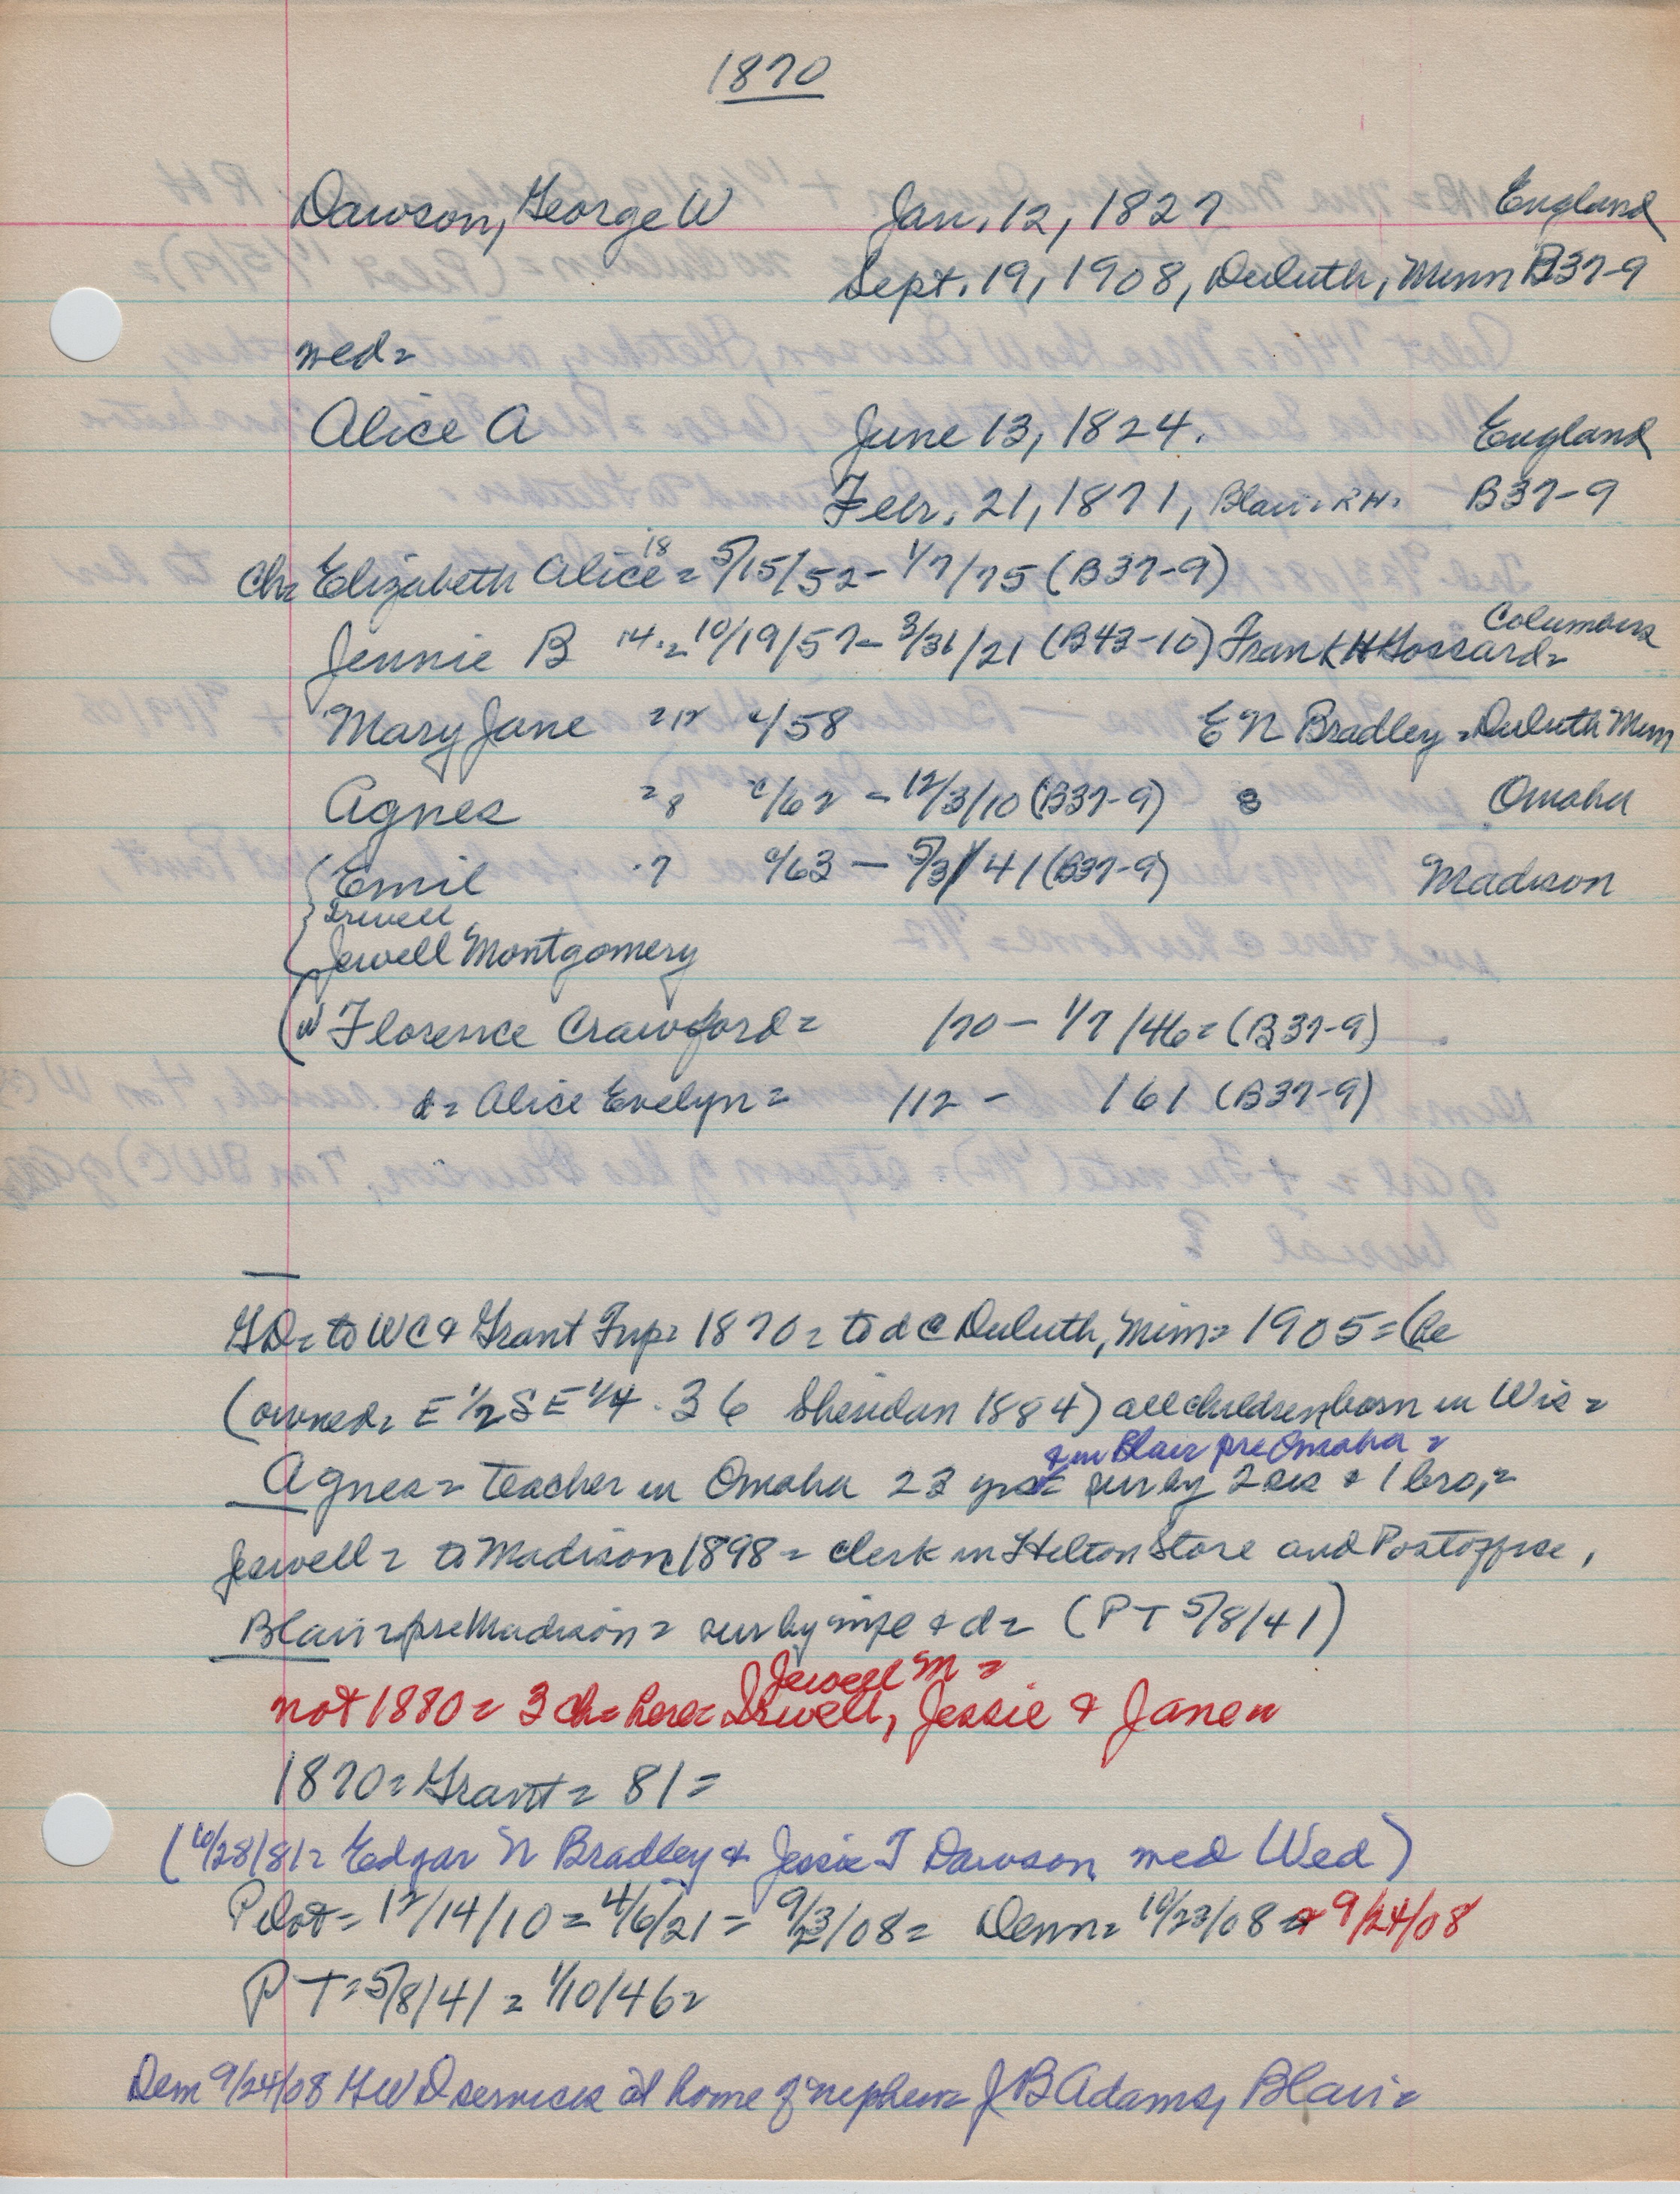 1870
Dawson, George W Jan. 12, 1827 England
Sept. 19, 1908, Duluth, Minn B37-9
med=
Alice A June 13, 1824. England
Febr. 21, 1871, Blair= RH= B37-9
Ch= Elizabeth Alice 18 = 5/15/52 - 1/7/75 (B37-9)
Jennie B 14 = 10/19/57 - 3/31/21 (B43-10) Frank H Gossard= Columbus
Mary Jane =12 c/58 E N Bradley = Duluth Minn
Agnes =8 c/62 - 12/3/10 (B37-9) s Omaha
Emil 7 c/63 - 5/3/41 (B37-9) Madison
Irwell
Jewell Montgomery
(w Florence Crawford= /70 - 1/7/46= (B37-9)
d= Alice Evelyn= /12 - /61 (B37-9)
GD= to WC & Grant Twp= 1870= to d @ Duluth, Minn= 1905=
(owned= E 1/2 SE 1/4 . 36 Sheridan 1884) all children born in Wis=
& in Blair pre Omaha=
Agnes= teacher in Omaha 23 yrs= sur by 2 sis & 1 bro,=
Jewell= to Madison 1898= clerk in Hilton Store and Postoffice,
Blair= pre Madison= sur by wife & d= (PT 5/8/41)
Jewell M=
not 1880= 3 ch= here= Irwell, Jessie & Jane
1870= Grant= 81=
(10/28/81= Edgar N Bradley & Jessie J Dawson med Wed)
Pilot= 12/14/10= 4/6/21= 9/23/08= Dem= 10/23/08 & 9/24/08
PT= 5/8/41= 1/10/46=
Dem 9/24/08 GWD services at home of nephew= J B Adams, Blair=